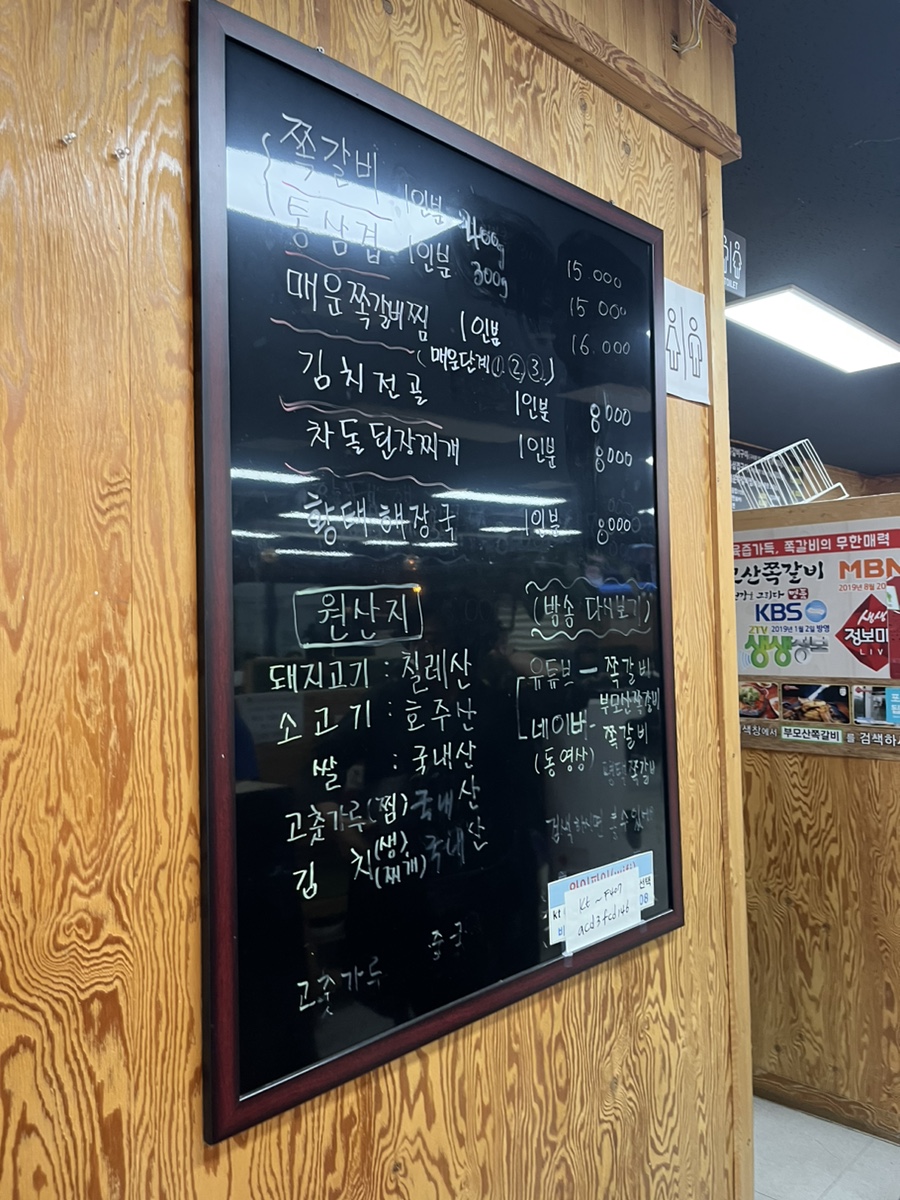 쪽갈비 1인분 400g 15000
통삼겹 1인분 300g 15000
매운쪽갈비찜 1인분 16.000
(매운단계①,②,③.)
김치전골 1인분 8000
차돌된장찌개 1인분 8000
황태해장국 1인분 8000
원산지
돼지고기 : 칠레산
소고기 : 호주산
쌀 : 국내산
고춧가루(찜) 국내산
김치(생)(찌개) 국내산
중국
고춧가루
(방송 다시보기)
유튜브 - 쪽갈비
부모산쪽갈비
네이버 - 쪽갈비
(동영상) 평택쪽갈비
검색하시면 볼수있네
kt
선택
08
Kt ~ F407
acd3fcd146
TOILET
육즙가득, 쪽갈비의 무한매력
모산쪽갈비
MBN
KBS
2TV 2019년 1월 2일 방영
2019년 8월 20
생생정보
생생
정보마
LIV
색창에서 부모산쪽갈비 를 검색하시